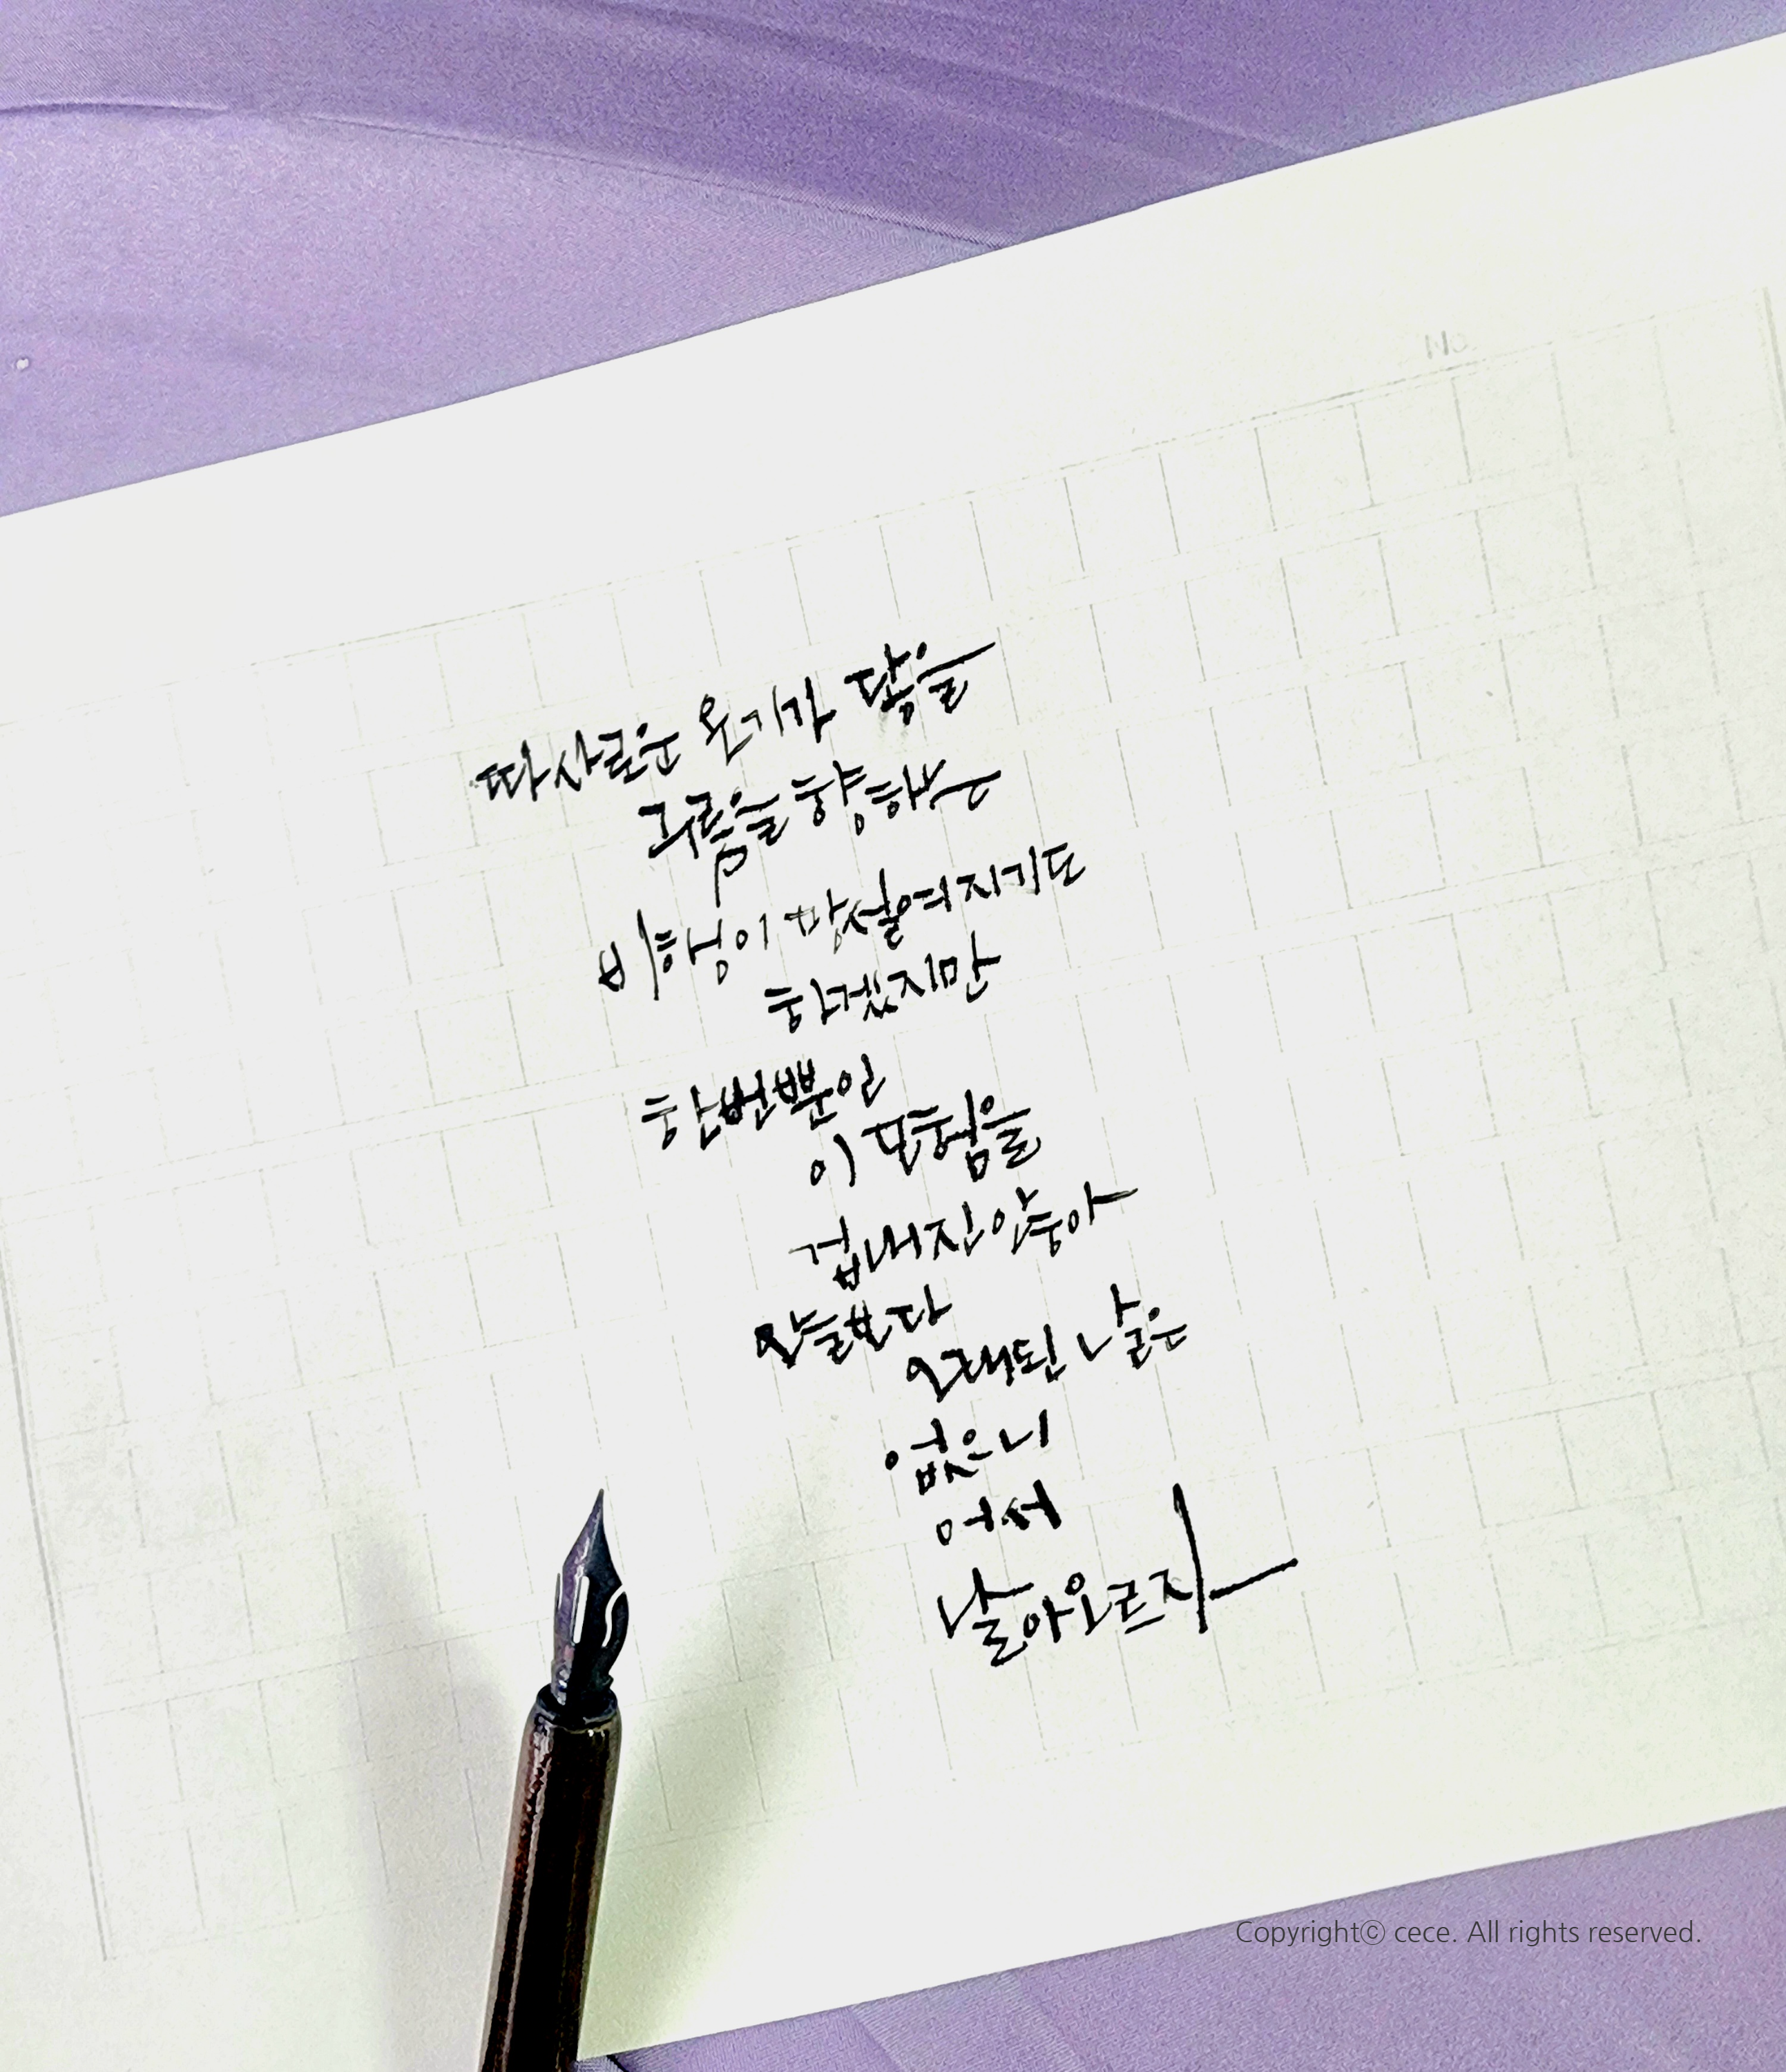 No.
따사로운 온기가 닿을
구름을 향하는
비행이 망설여지기도
하겠지만
한번뿐일
이 모험을
겁내진 않아
오늘보다
오래된 날은
없으니
어서
날아오르지
Copyright© cece. All rights reserved.